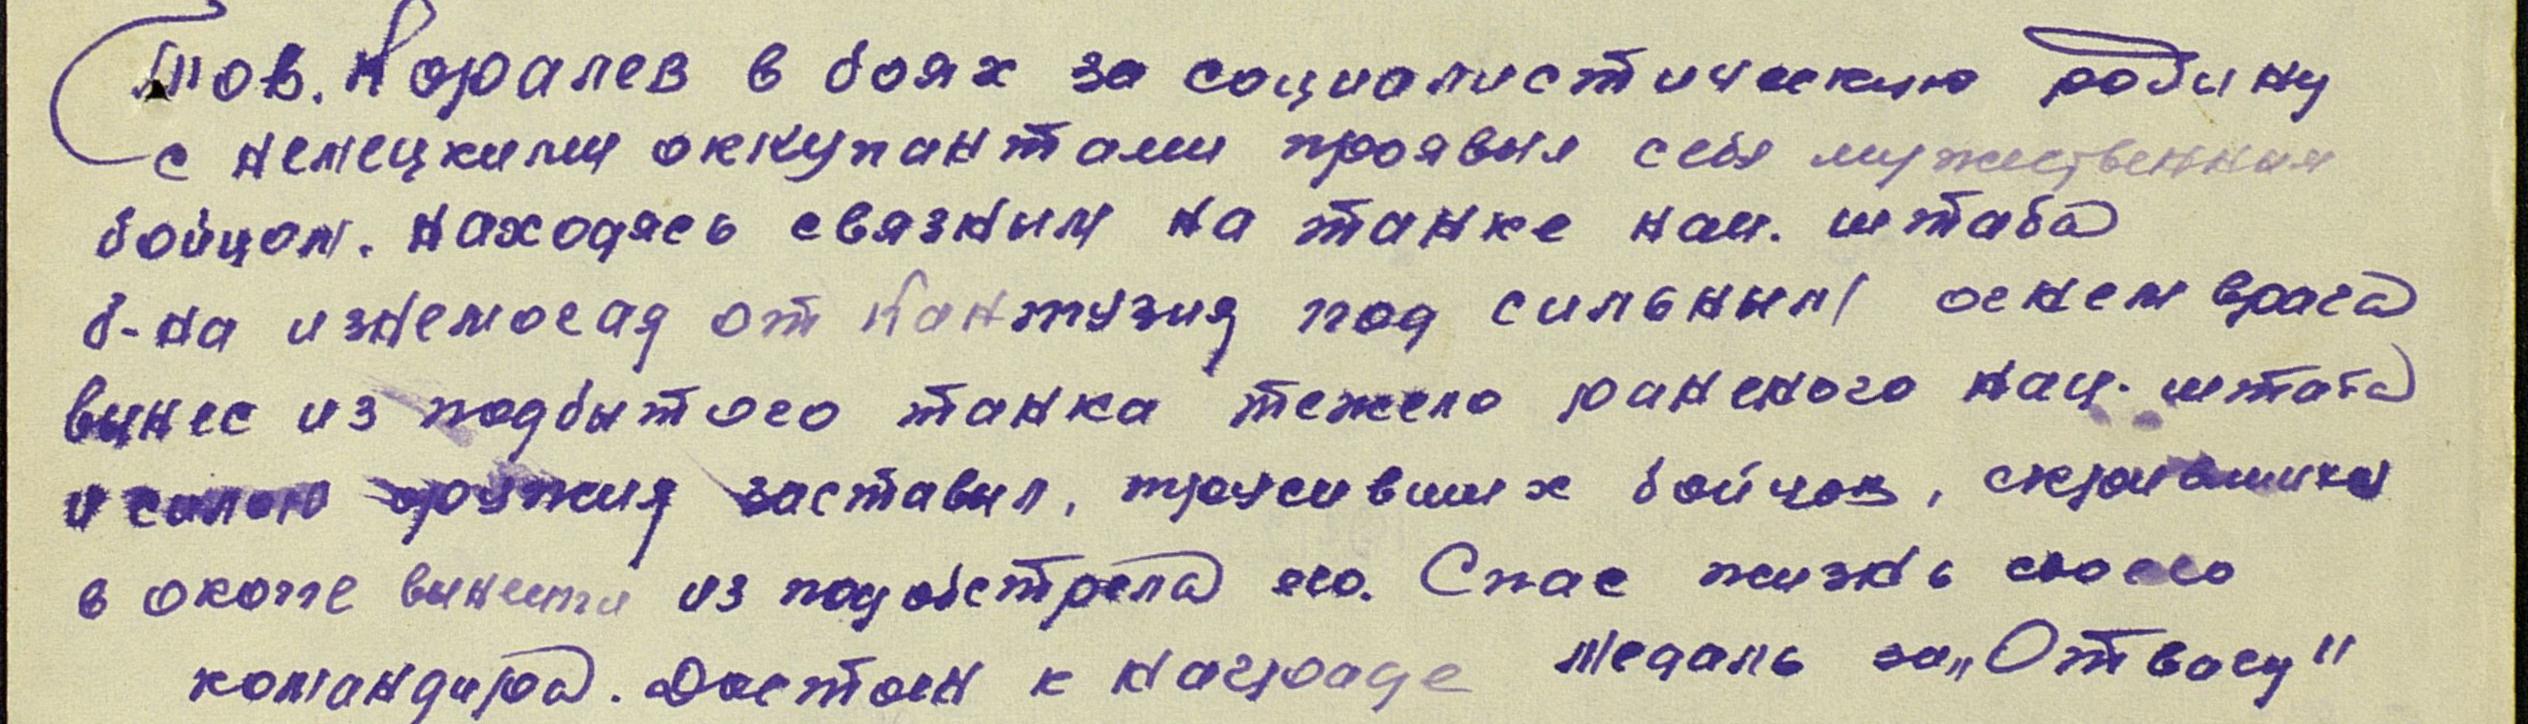 Тов. Коралев в боях за социалистическую родину
с немецкими оккупантами проявил себя мужественным
бойцом. Находясь связным на танке нач. штаба
б-на изнемогая от кантузия под сильным огнем врага
вынес из подбытого танка тежело раненого нач. штаба
и силою оружия заставил, трусивших бойцов, скрывшихся
в окопе вынести из под обстрела его. Спас жизнь своего
командира. Достоен к награде медаль за „Отвагу"